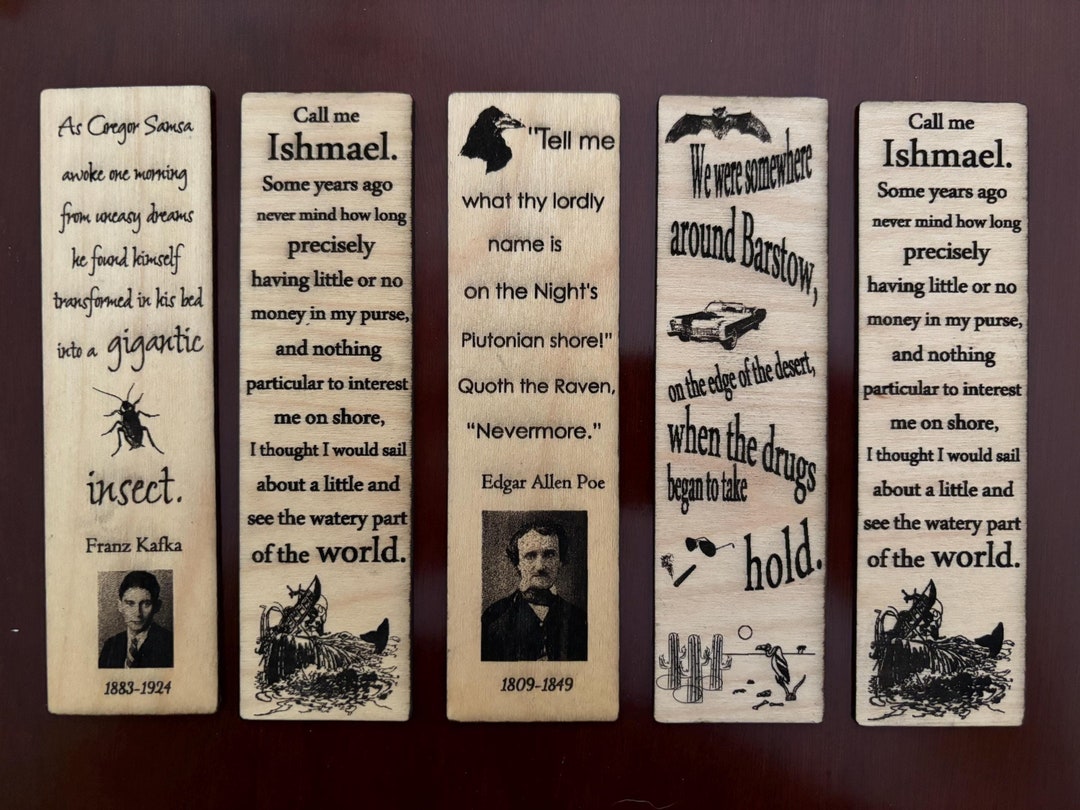 As Gregor Samsa
awoke one morning
from uneasy dreams
he found himself
transformed in his bed
into a gigantic
insect.
Franz Kafka
1883-1924
Call me
Ishmael.
Some years ago
never mind how long
precisely
having little or no
money in my purse,
and nothing
particular to interest
me on shore,
I thought I would sail
about a little and
see the watery part
of the world.
"Tell me
what thy lordly
name is
on the Night's
Plutonian shore!"
Quoth the Raven,
“Nevermore.”
Edgar Allen Poe
1809-1849
We were somewhere
around Barstow,
on the edge of the desert,
when the drugs
began to take
hold.
Call me
Ishmael.
Some years ago
never mind how long
precisely
having little or no
money in my purse,
and nothing
particular to interest
me on shore,
I thought I would sail
about a little and
see the watery part
of the world.